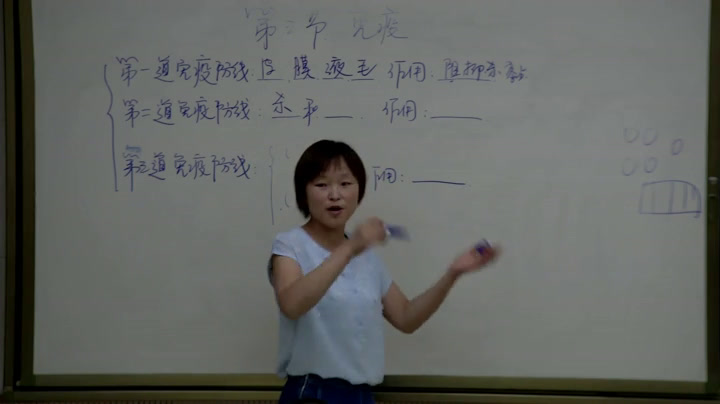 第二节 免疫
第一道免疫防线: 皮 膜 液 毛 作用: 阻抑杀
第二道免疫防线: 杀 和 __. 作用: ____
第三道免疫防线: 用: ____